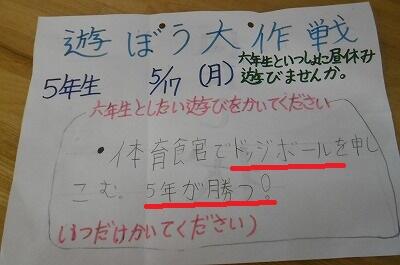 遊ぼう大作戦
5年生 5/17 (月)
六年生といっしょに昼休み
遊びませんか。
六年生としたい遊びをかいてください
・体育館でドッジボールを申し
こむ。5年が勝つ!
(1つだけかいてください)